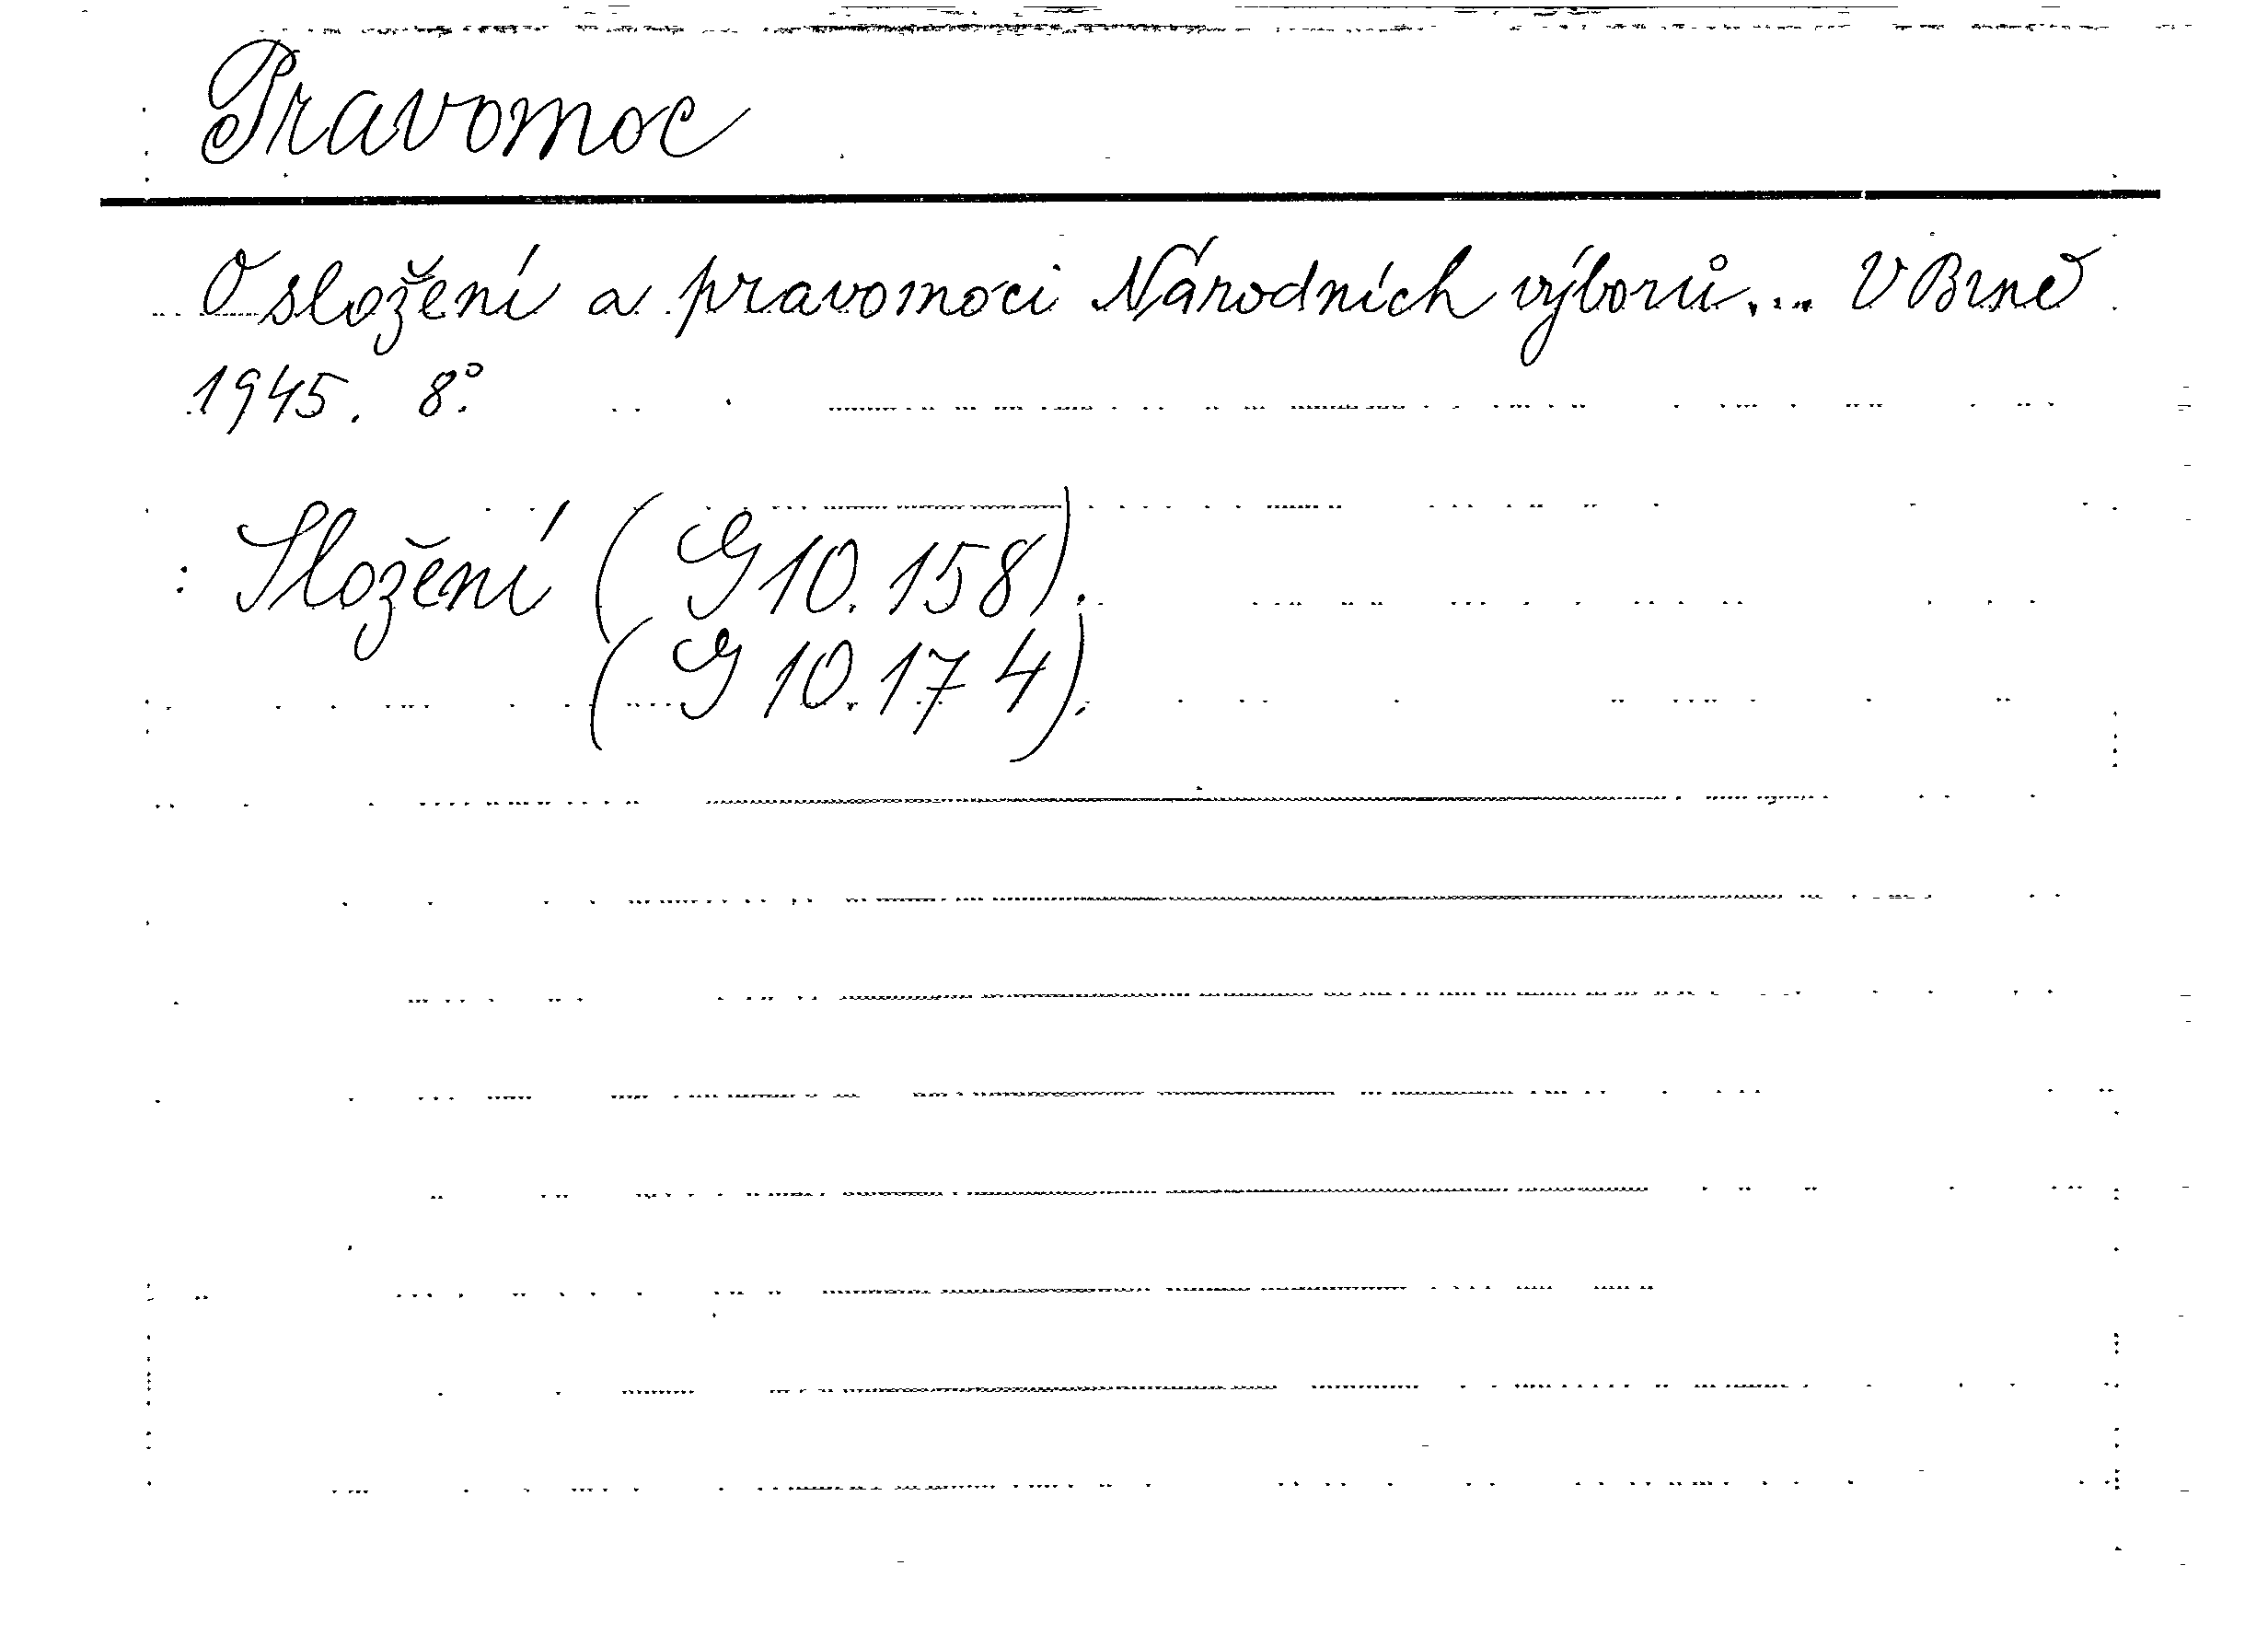 Pravomoc
O složení a pravomoci Národních výborů... V Brně
1945. 8°.
: Složení (G 10.158).
(G 10.174).